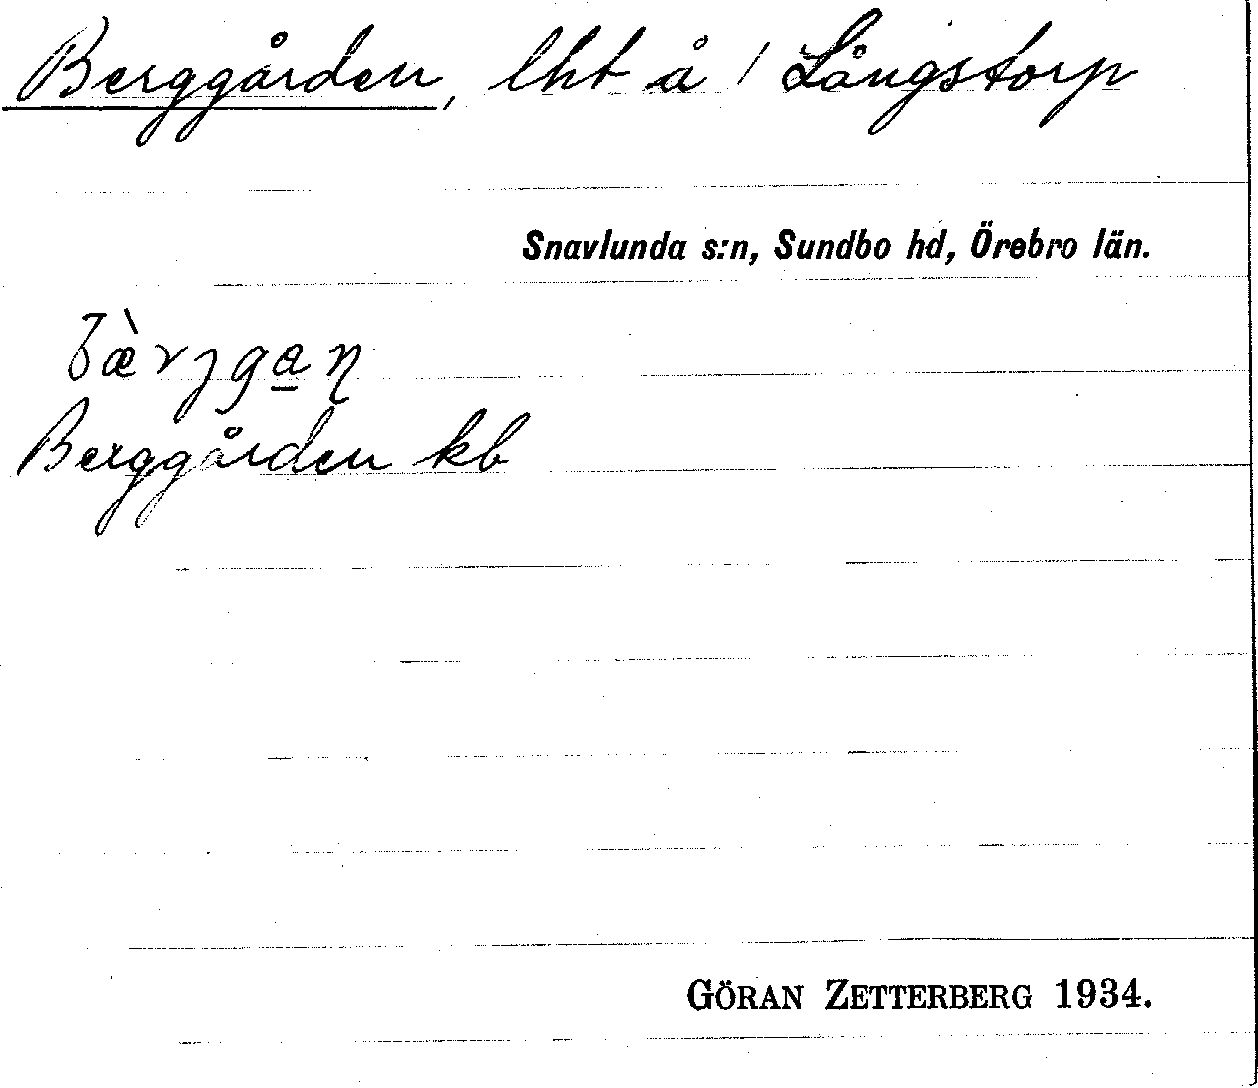 Berggården, lht å 1 Långstorp
Snavlunda s:n, Sundbo hd, Örebro län.
bæ̀rjga̲ɳ
Berggården kb
GÖRAN ZETTERBERG 1934.